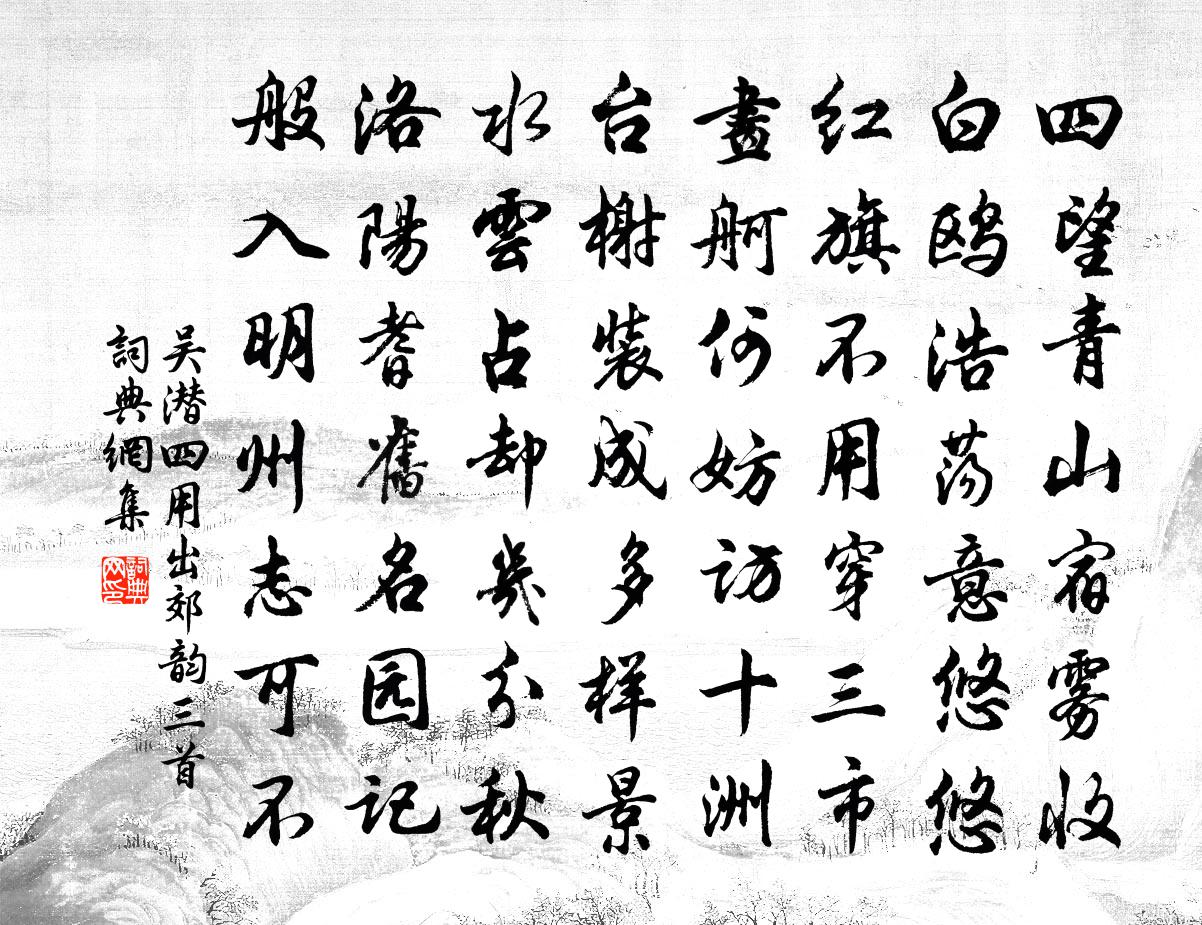 四望青山宿雾收
白鸥浩荡意悠悠
红旗不用穿三市
畫舸何妨访十洲
台榭裝成多样景
水雲占却幾分秋
洛陽耆舊名园记
般入明州志可不
吴潜四用出郊韵三首
詞典網集
詞典
网印